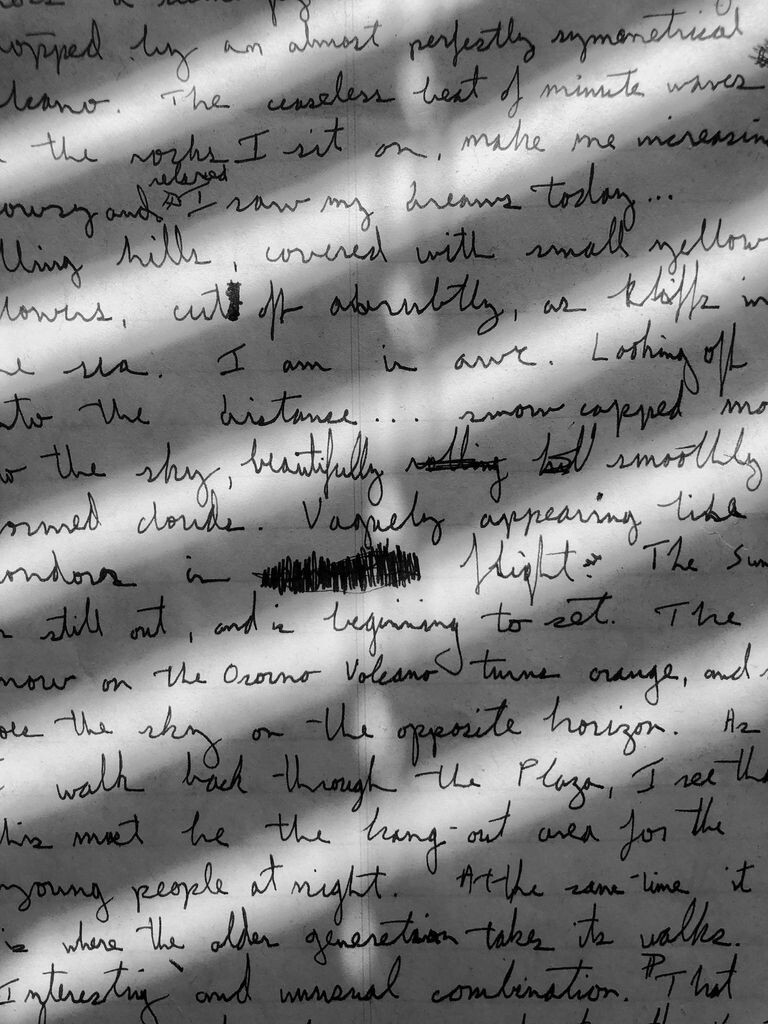 opped by an almost perfectly symmetrical
lcano. The ceaseless beat of minute waves
the rocks I sit on, make me increasin
relaxed
owsy and I saw my dreams today...
lling hills, covered with small yellow
lowers, cut off abrubtly, as kliffs in
he sea. I am in awe. Looking off
nto the distance... snow capped mo
o the sky, beautifully rolling smoothly
ormed clouds. Vaguely appearing like
ondors in flight. The Sun
still out, and is beginning to set. The
now on the Osorno Volcano turns orange, and s
oes the sky on the opposite horizon. As
I walk back through the Plaza, I see tha
his must be the hang-out area for the
young people at night. At the same-time it
is where the older generation takes its walks.
Interesting and unusual combination. That